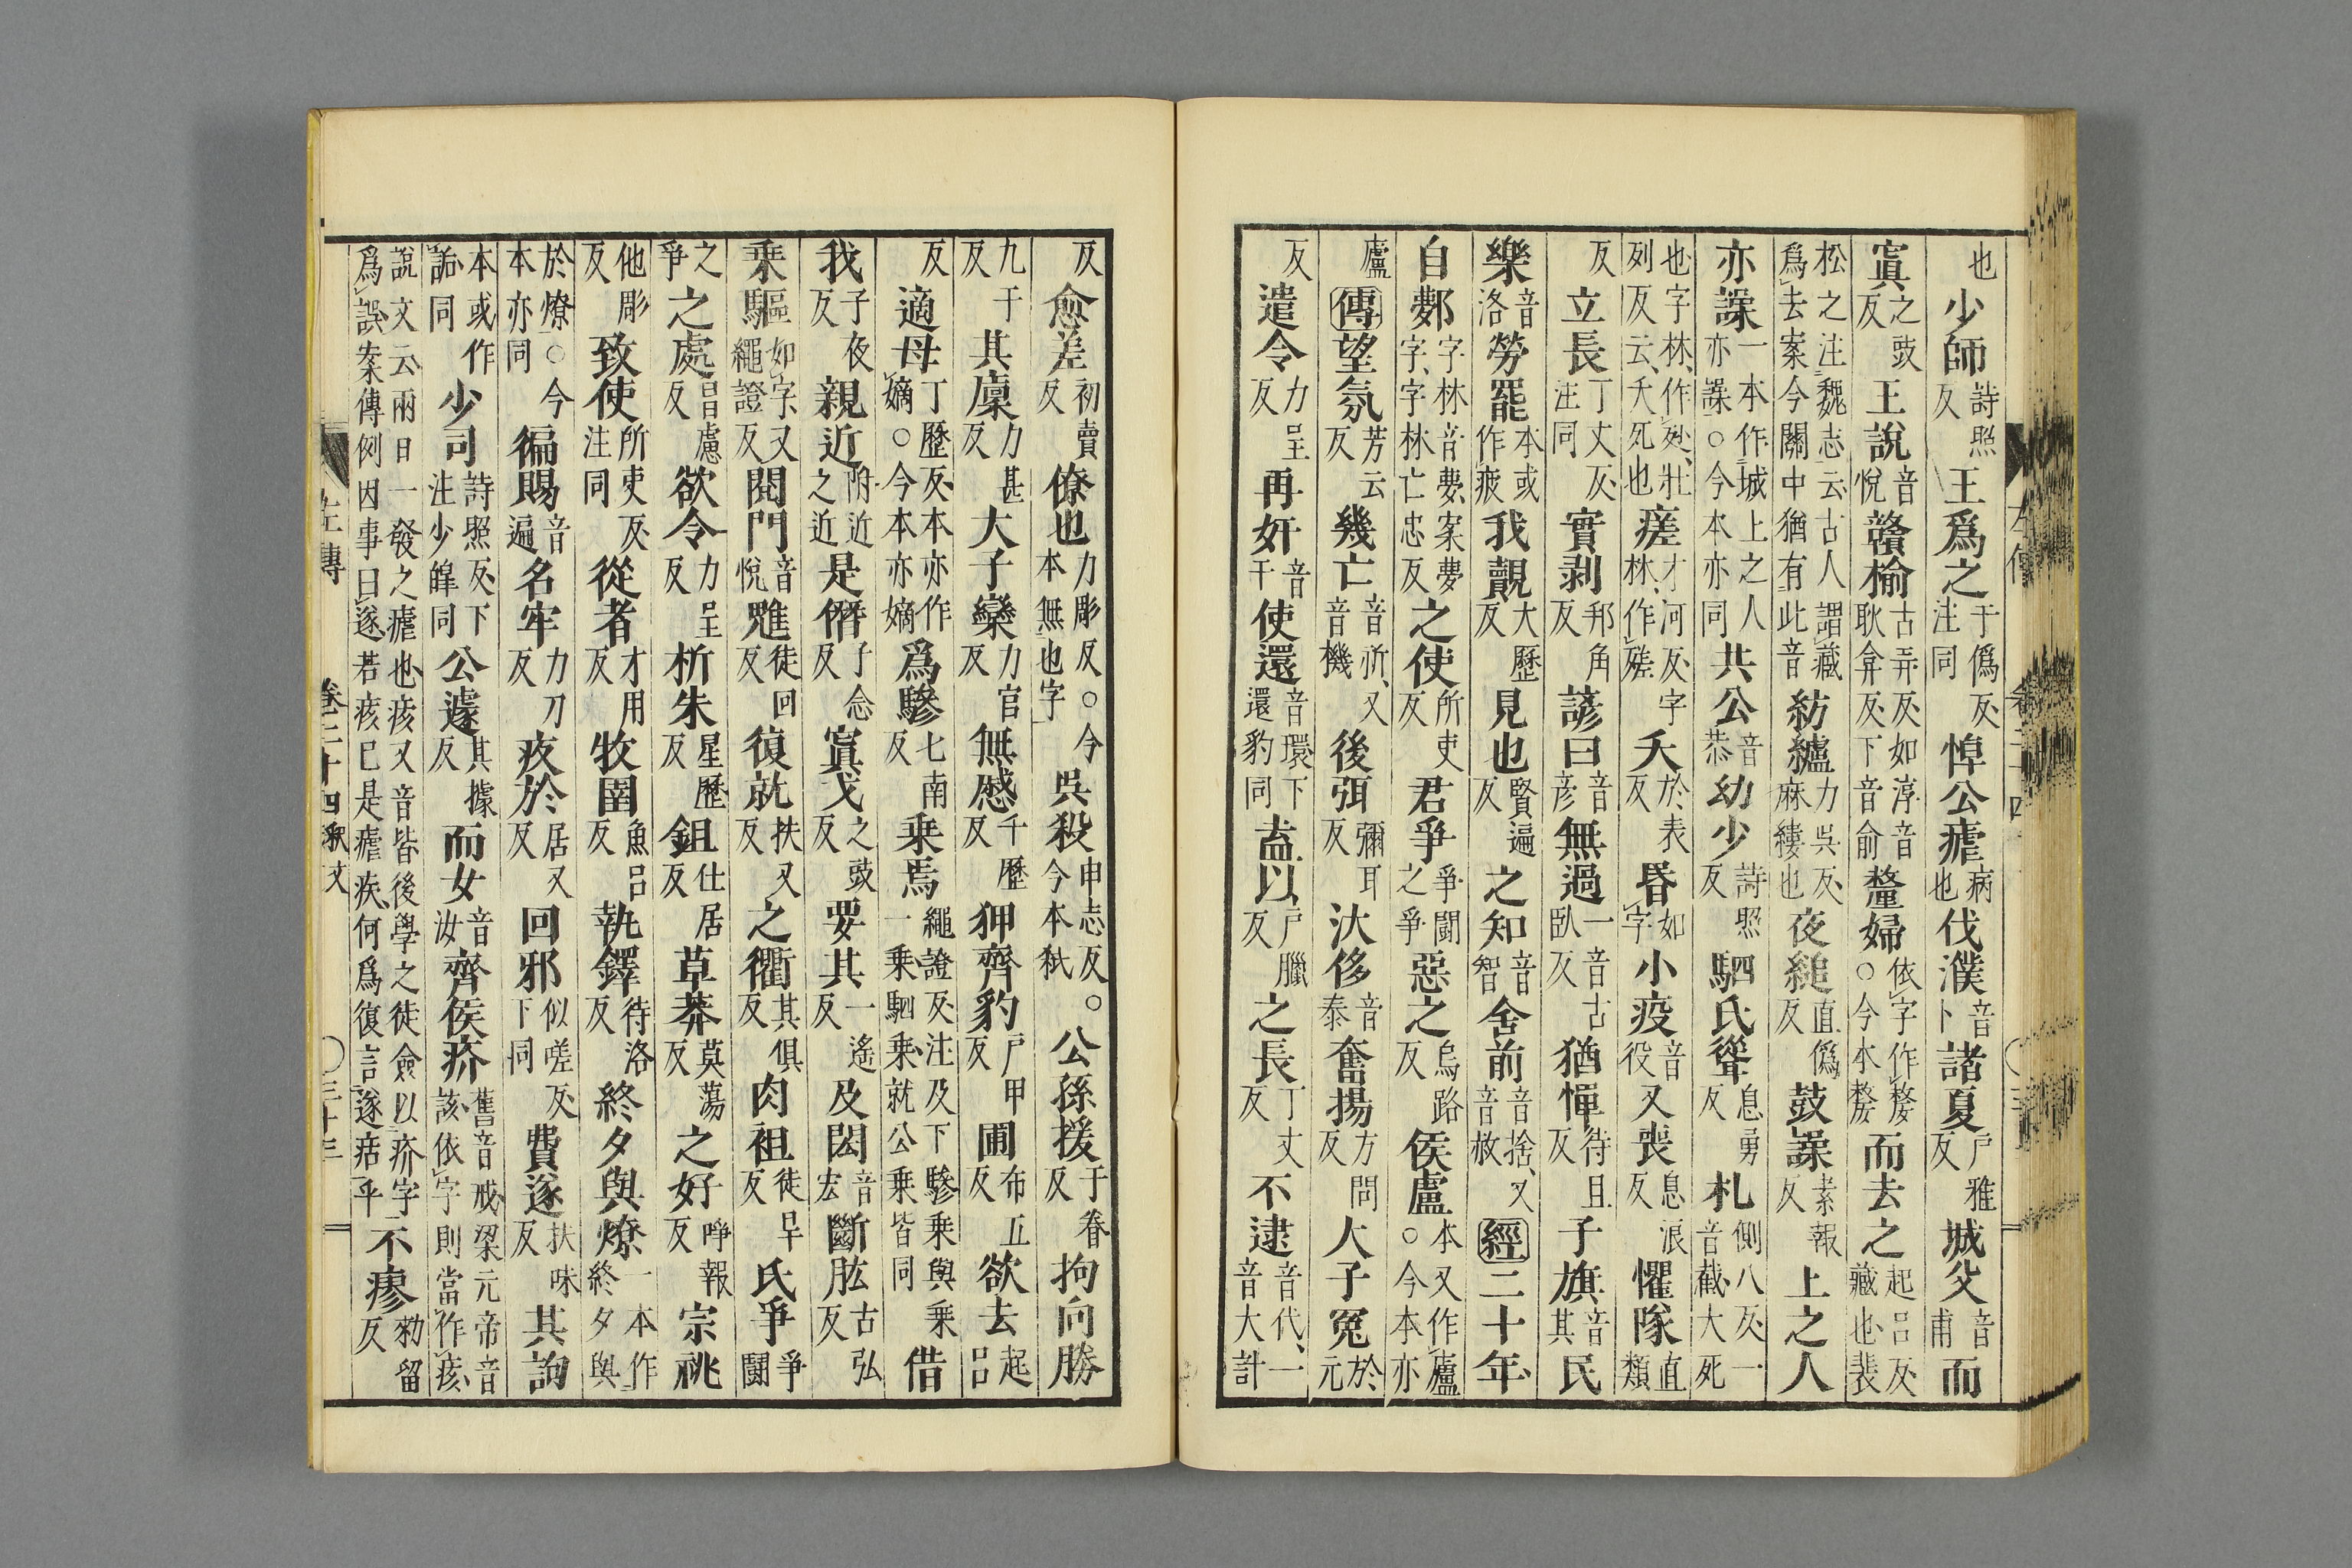 也少師詩照反王爲之于僞反注同悼公瘧病也伐濮音卜諸夏戶雅反城父音甫而
寘之豉反王說音悅贛榆古弄反如淳音耿弇反下音俞釐婦依字作嫠○今本嫠而去之起呂反藏也裴
松之注魏志云古人謂藏爲去案今關中猶有此音紡纑力吳反麻縷也夜縋直僞反鼓譟素報反上之人
亦譟一本作城上之人亦譟○今本亦同共公音恭幼少詩照反駟氏聳息勇反札側八反一音截大死
也字林作壯列反云夭死也瘥才河反字林作夭於表反昏如字小疫音役又喪息浪反懼隊直類
反立長丁丈反注同實剥邦角反諺曰音彥無過一音古臥反猶憚待旦反子旗音其民
樂音洛勞罷本或作疲我覿大歷反見也賢遍反之知音智舍前音捨又音赦經二十年
自鄸字林音夢案夢字字林亡忠反之使所吏反君爭爭鬭之爭惡之烏路反侯盧本又作廬○今本亦
廬傳望氛芳云反幾亡音祈又音機後弭彌耳反汰侈音泰奮揚方問反大子冤於元
反遣令力呈反再奸音干使還音環下還豹同盍以戶臘反之長丁丈反不逮音代一音大計
反愈差初賣反僚也力彫反○今本無也字吳殺申志反○今本弒公孫援于眷反拘向勝
九于反其廩力甚反大子欒力官反無慼千歷反狎齊豹戶甲反圃布五反欲去起呂
反適母丁歷反本亦作嫡○今本亦嫡爲驂七南反乗焉繩證反注及下驂乗與乗一乗駟乗就公乗皆同借
我子夜反親近附近之近是僭子念反寘戈之豉反要其一遙反及閎音宏斷肱古弘反
乗驅如字又繩證反閱門音悅魋徒回反復就扶又反之衢其俱反肉袒徒旱反氏爭爭鬭
之爭之處昌慮反欲令力呈反析朱星歷反鉏仕居反草莽莫蕩反之好呼報反宗祧
他彫反致使所吏反注同從者才用反牧圉魚呂反執鐸待洛反終夕與燎一本作終夕與
於燎○今本亦同徧賜音遍名牢力刀反疚於居又反回邪似嗟反下同費遂扶味反其詢
本或作詬同少司詩照反下注少皥同公遽其據反而女音汝齊侯疥舊音戒梁元帝音該依字則當作痎
說文云兩日一發之瘧也痎又音皆後學之徒僉以疥字爲誤案傳例因事曰遂若痎已是瘧疾何爲復言遂痁乎不瘳勑留反
左傳 卷二十四釋文